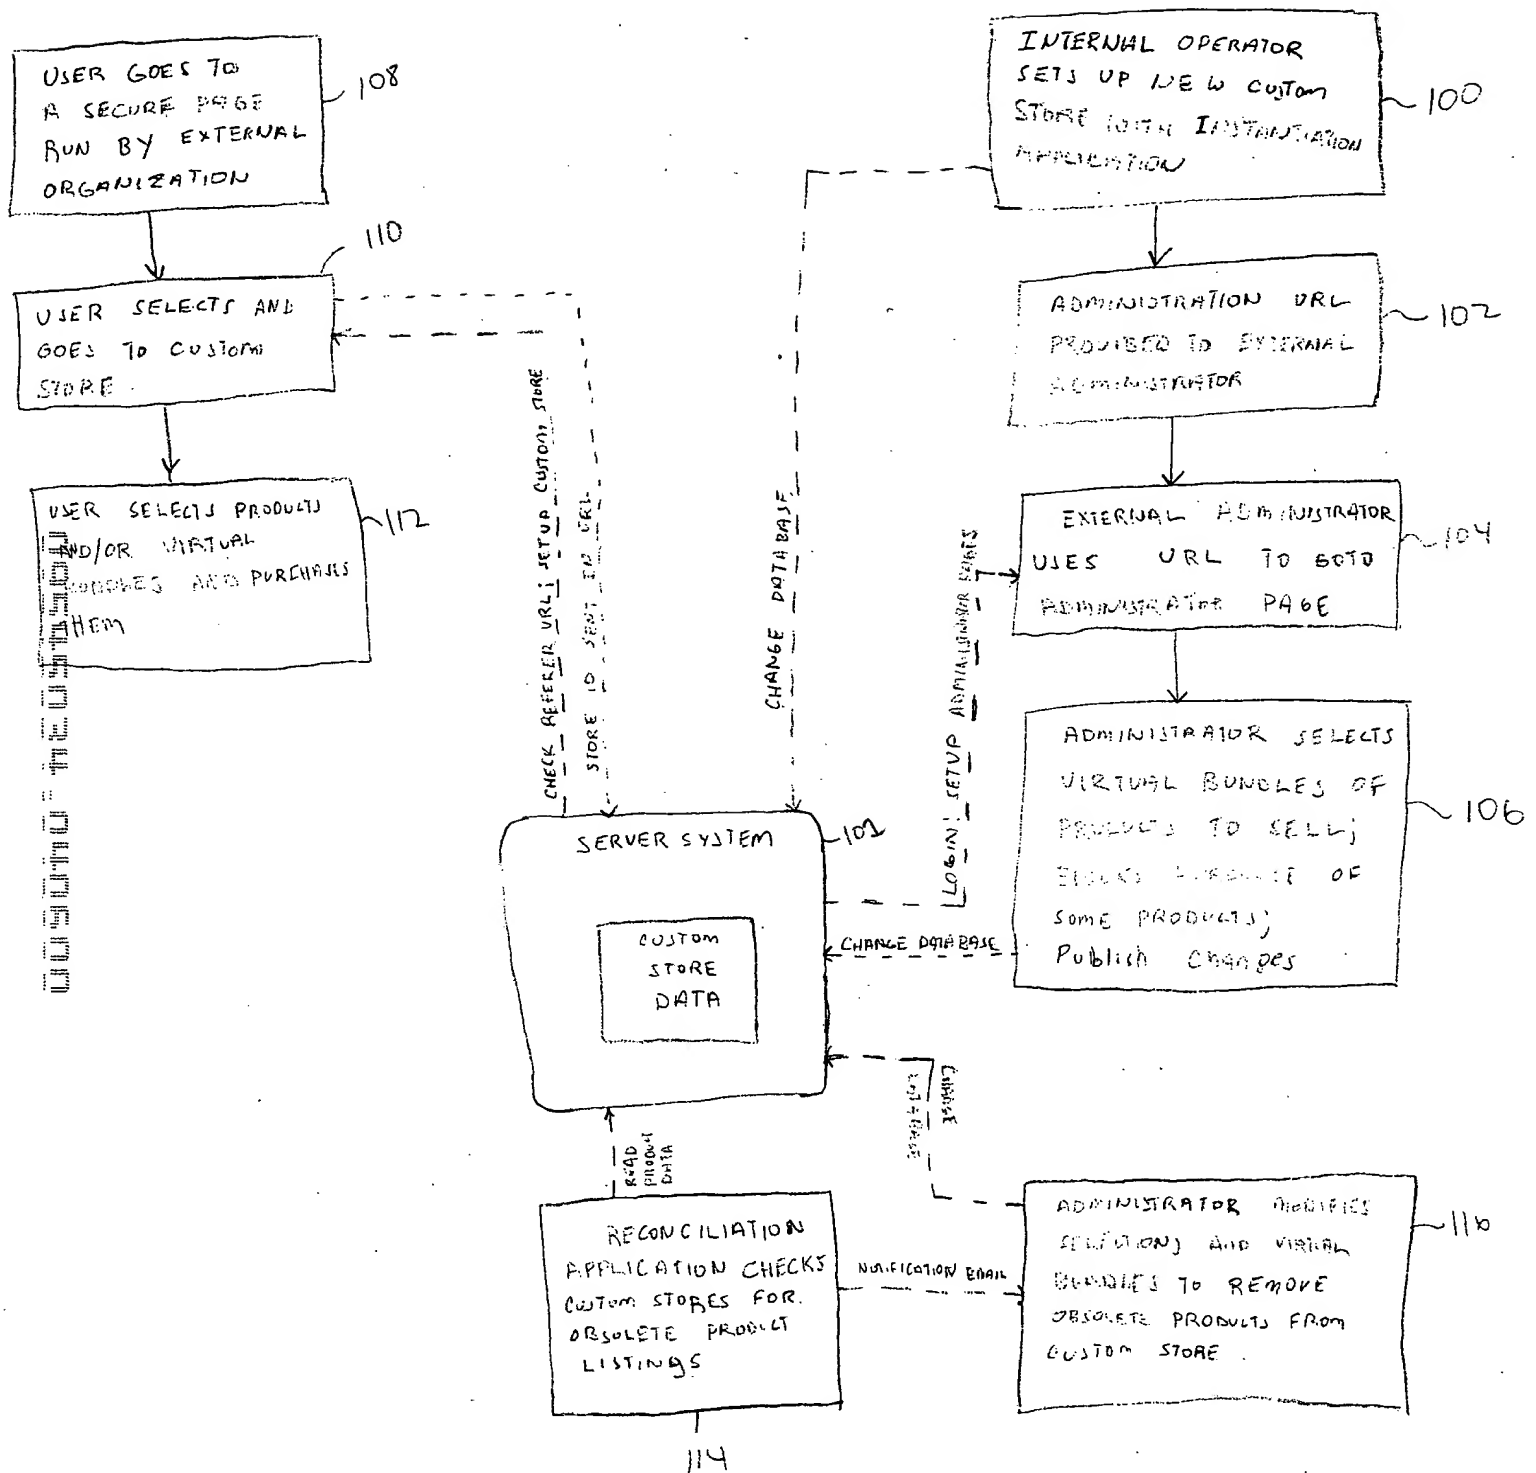 USER GOES TO
A SECURE PAGE
RUN BY EXTERNAL
ORGANIZATION
108
110
USER SELECTS AND
GOES TO CUSTOM
STORE
USER SELECTS PRODUCTS
AND/OR VIRTUAL
BUNDLES AND PURCHASES
THEM
112
INTERNAL OPERATOR
SETS UP NEW CUSTOM
STORE WITH INSTANTIATION
APPLICATION
100
ADMINISTRATION URL
PROVIDED TO EXTERNAL
ADMINISTRATOR
102
EXTERNAL ADMINISTRATOR
USES URL TO GOTO
ADMINISTRATOR PAGE
104
ADMINISTRATOR SELECTS
VIRTUAL BUNDLES OF
PRODUCTS TO SELL;
OF
SOME PRODUCTS;
Publish Changes
106
CHECK REFERER URL; SETUP CUSTOM STORE
STORE ID SENT IN URL
CHANGE DATABASE
LOGIN; SETUP ADMINISTRATOR
SERVER SYSTEM
101
CUSTOM
STORE
DATA
CHANGE DATABASE
CHANGE
DATABASE
READ
PRODUCT
DATA
RECONCILIATION
APPLICATION CHECKS
CUSTOM STORES FOR
OBSOLETE PRODUCT
LISTINGS
114
NOTIFICATION EMAIL
ADMINISTRATOR MODIFIES
SELECTIONS AND VIRTUAL
BUNDLES TO REMOVE
OBSOLETE PRODUCTS FROM
CUSTOM STORE.
116